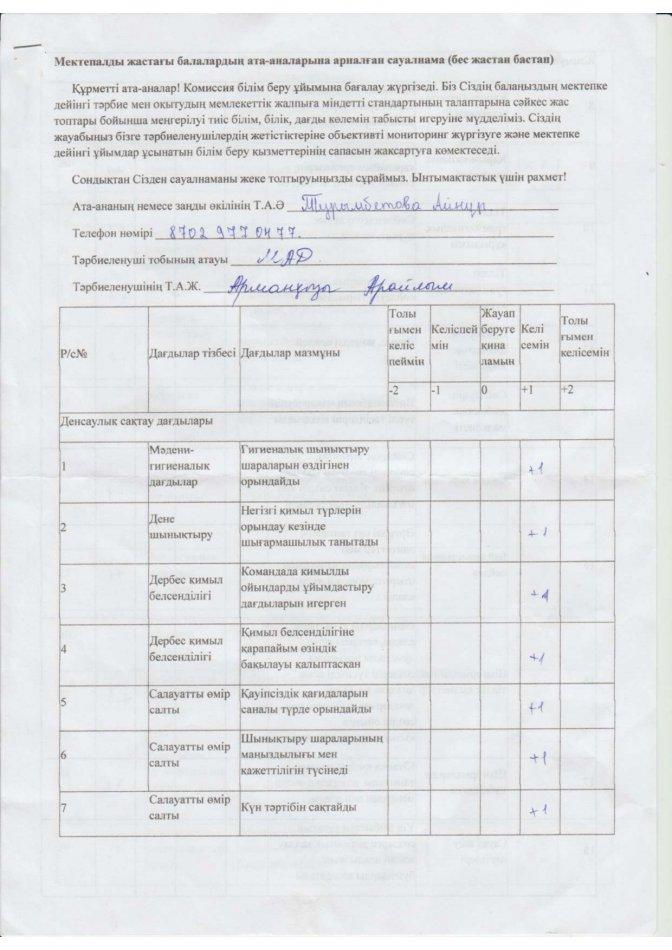 Мектепалды жастағы балалардың ата-аналарына арналған сауалнама (бес жастан бастап)
Құрметті ата-аналар! Комиссия білім беру ұйымына бағалау жүргізеді. Біз Сіздің балаңыздың мектепке
дейінгі тәрбие мен оқытудың мемлекеттік жалпыға міндетті стандартының талаптарына сәйкес жас
топтары бойынша меңгерілуі тиіс білім, білік, дағды көлемін табысты игеруіне мүдделіміз. Сіздің
жауабыңыз бізге тәрбиеленушілердің жетістіктеріне объективті мониторинг жүргізуге және мектепке
дейінгі ұйымдар ұсынатын білім беру қызметтерінің сапасын жақсартуға көмектеседі.
Сондықтан Сізден сауалнаманы жеке толтыруыңызды сұраймыз. Ынтымақтастық үшін рахмет!
Ата-ананың немесе заңды өкілінің Т.А.Ә Турымбетова Айнур
Телефон нөмірі 8702 977 0477.
Тәрбиеленуші тобының атауы МАД
Тәрбиеленушінің Т.А.Ж. Арманқызы Арайлым
Р/с№ Дағдылар тізбесі Дағдылар мазмұны Толы Келіспей Жауап Келі Толы
ғымен мін беруге семін ғымен
келіс қина келісемін
пеймін ламын
-2 -1 0 +1 +2
Денсаулық сақтау дағдылары
1 Мәдени- Гигиеналық шынықтыру
гигиеналық шараларын өздігінен +1
дағдылар орындайды
2 Дене Негізгі қимыл түрлерін
шынықтыру орындау кезінде +1
шығармашылық танытады
3 Дербес қимыл Командада қимылды
белсенділігі ойындарды ұйымдастыру +1
дағдыларын игерген
4 Дербес қимыл Қимыл белсенділігіне
белсенділігі қарапайым өзіндік +1
бақылауы қалыптасқан
5 Салауатты өмір Қауіпсіздік қағидаларын
салты саналы түрде орындайды +1
6 Салауатты өмір Шынықтыру шараларының
салты маңыздылығы мен +1
қажеттілігін түсінеді
7 Салауатты өмір Күн тәртібін сақтайды +1
салты